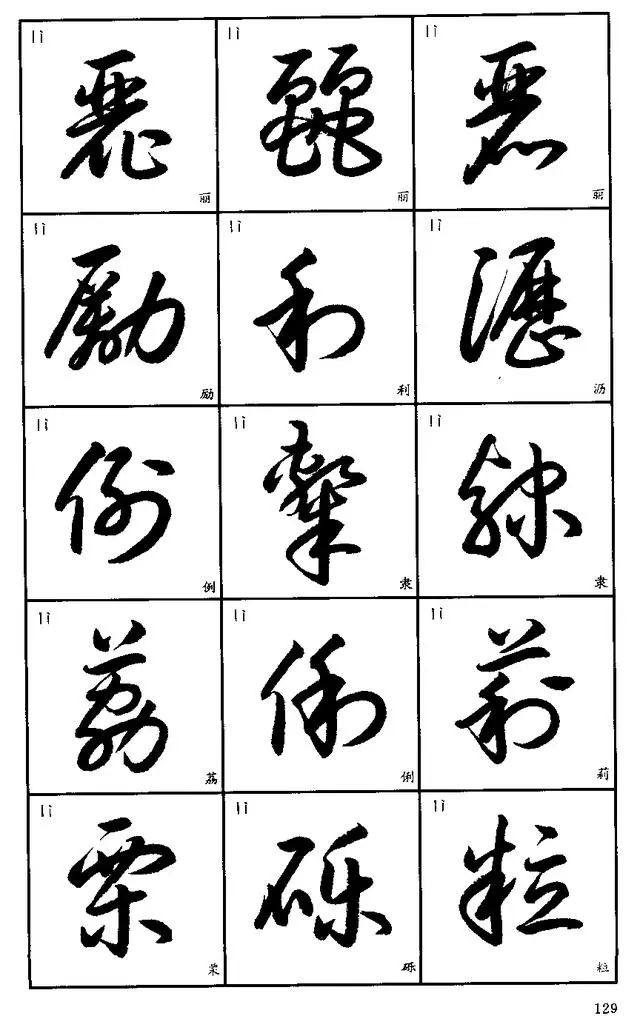 lì lì lì
麗 麗 麗
丽 丽 丽
lì lì lì
勵 利 瀝
励 利 沥
lì lì lì
例 隸 隸
例 隶 隶
lì lì lì
荔 俐 莉
荔 俐 莉
lì lì lì
栗 砾 粒
栗 砾 粒
129